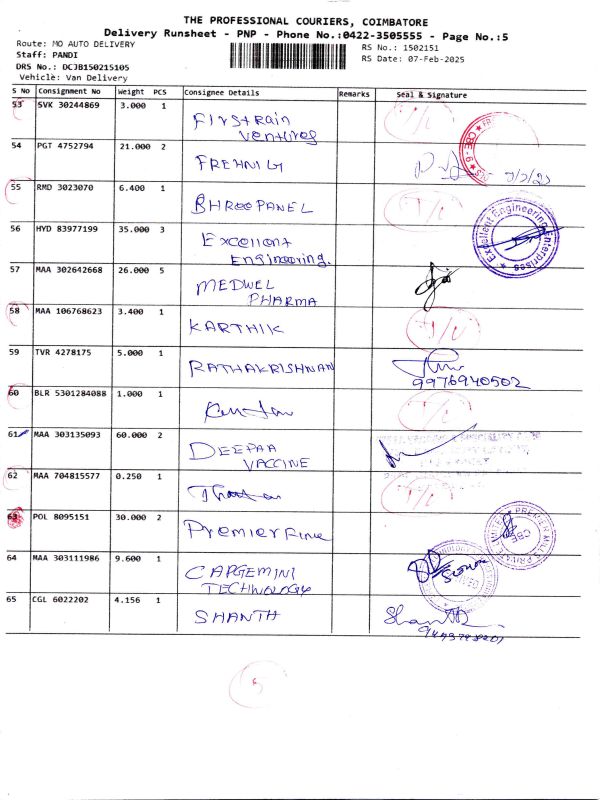 THE PROFESSIONAL COURIERS, COIMBATORE
Delivery Runsheet - PNP - Phone No.:0422-3505555 - Page No.:5
Route: MO AUTO DELIVERY
RS No.: 1502151
Staff: PANDI
RS Date: 07-Feb-2025
DRS No.: DCJB150215105
Vehicle: Van Delivery
S No Consignment No Weight PCS Consignee Details Remarks Seal & Signature
53 SVK 30244869 3.000 1
Firstrain
Ventures
54 PGT 4752794 21.000 2
FREHNIG
55 RMD 3023070 6.400 1
BHROOPANEL
56 HYD 83977199 35.000 3
Excellent
Engineering.
Excellent Engineering Enterprises
57 MAA 302642668 26.000 5
MEDWEL
PHARMA
58 MAA 106768623 3.400 1
KARTHIK
59 TVR 4278175 5.000 1
RATHAKRISHNAN
9976940502
60 BLR 5301284088 1.000 1
61 MAA 303135093 60.000 2
DEEPAA
VACCINE
62 MAA 704815577 0.250 1
63 POL 8095151 30.000 2
Premier Fine
PREMIER MILLS PRIVATE LIMITED
CBE
64 MAA 303111986 9.600 1
CAPGEMINI
TECHNOLOGY
65 CGL 6022202 4.156 1
SHANTH